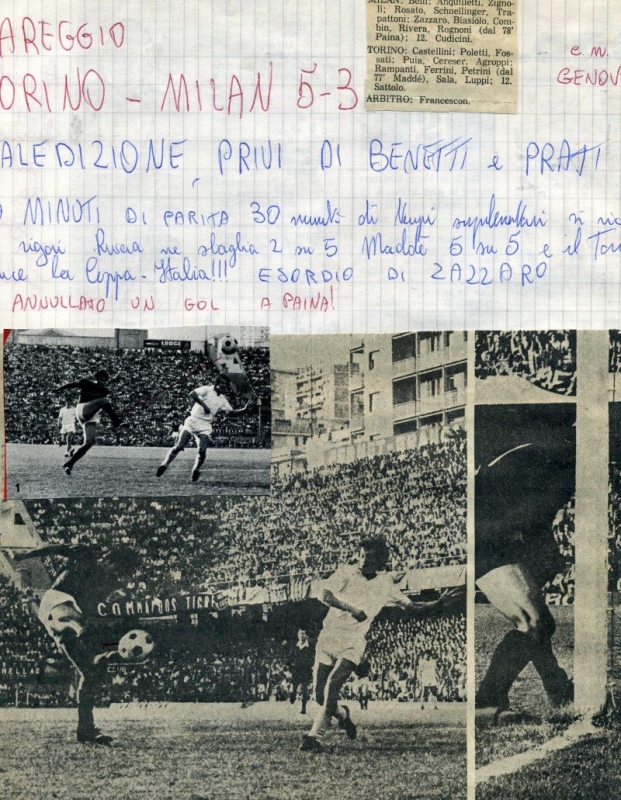 MILAN: Belli; Anquilletti, Zigno-
li; Rosato, Schnellinger, Tra-
pattoni; Zazzaro, Biasiolo, Com-
bin, Rivera, Rognoni (dal 78'
Paina); 12. Cudicini.
TORINO: Castellini; Poletti, Fos-
sati; Puia, Cereser, Agroppi;
Rampanti, Ferrini, Petrini (dal
77' Maddé), Sala, Luppi; 12.
Sattolo.
ARBITRO: Francescon.
AREGGIO
ORINO - MILAN 5-3
C.M.
GENOV
ALEDIZIONE, PRIVI DI BENETTI e PRATI
MINUTI DI PARITA 30 minuti di tempi suplementari si
rigori Rivera ne sbaglia 2 su 5 Maddè 5 su 5 e il Tor
la Coppa-Italia!!! ESORDIO DI ZAZZARO
ANNULLATO UN GOL A PAINA!
LODGE
1
COMMANDOS TIGRE